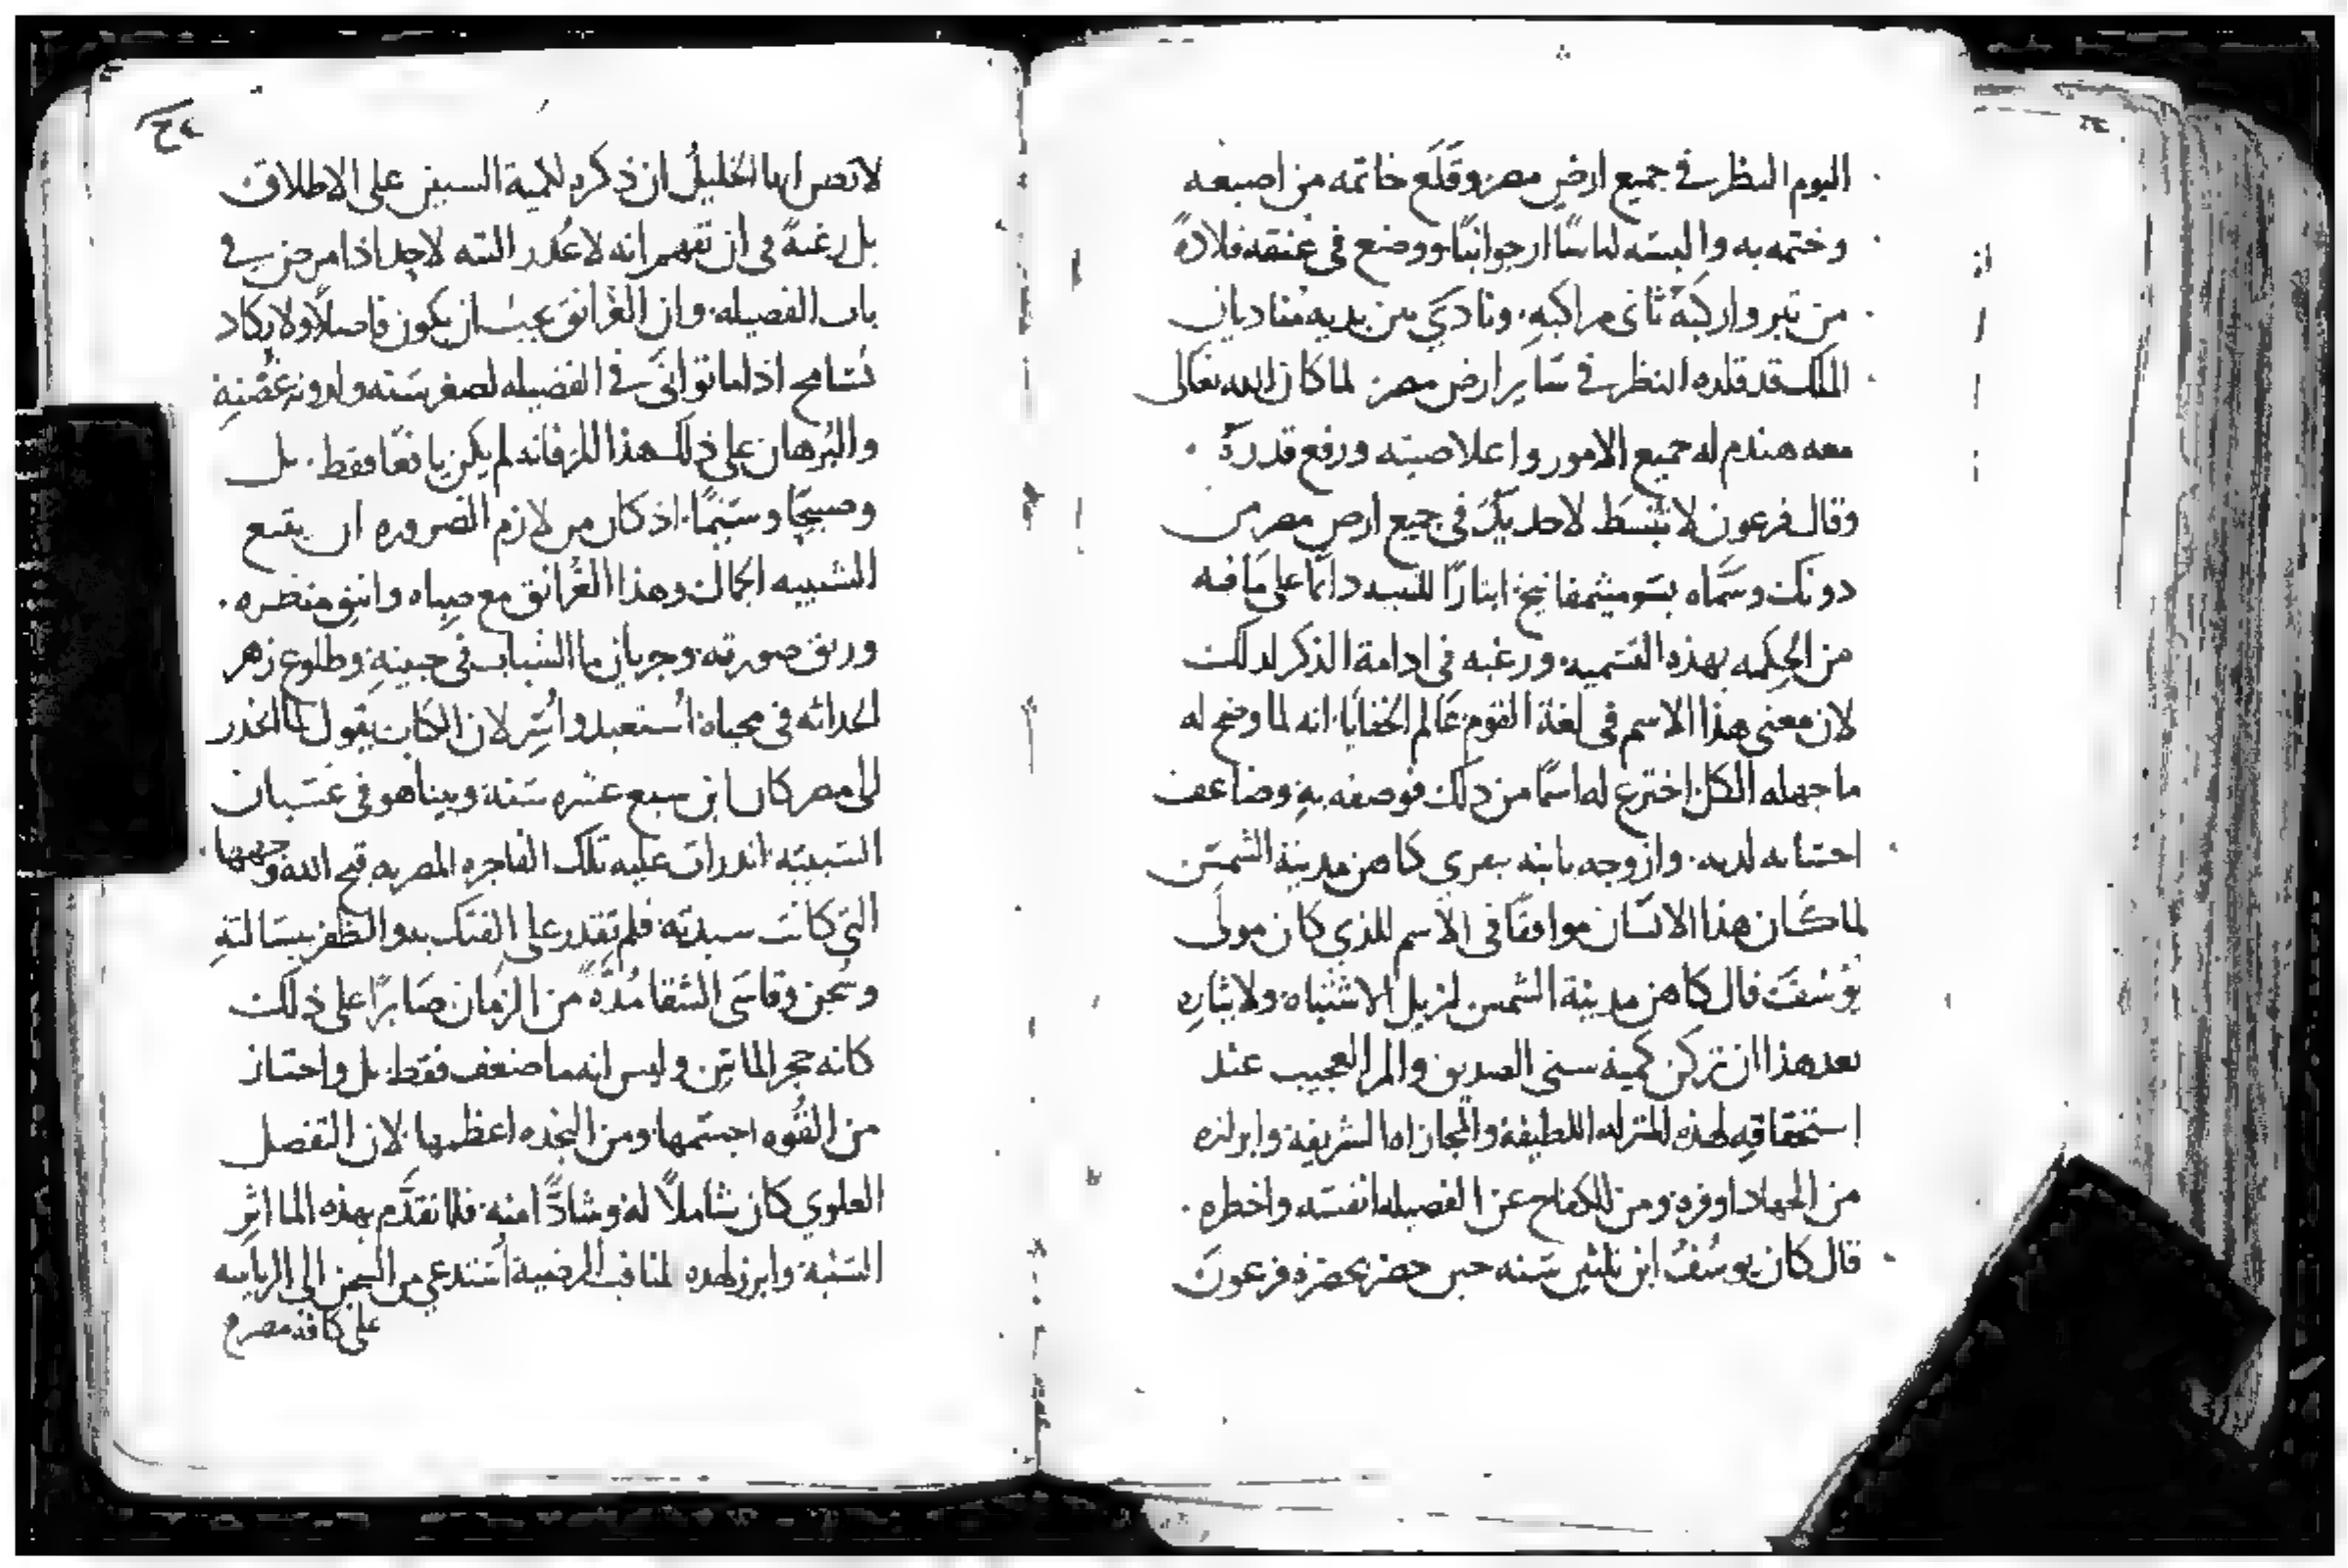 اليوم النظر في جميع ارض مصر وقلع خاتمه من اصبعه
وختمه به والبسه لباسًا ارجوانيًا ووضع في عنقه قلادة
من تبر واركبه ثاني مراكبه. ونادي بين يديه مناديان
الملك قد قلده النظر في ساير ارض مصر لما كان الله تعالى
معه هندم له جميع الامور واعلا صيته ورفع قدره
وقال فرعون لا تنبسط لاحد يد في جميع ارض مصر من
دونك وسماه للسيد دائما على ما فيه
من الحكمه بهذه التسميه ورغبه في ادامة الذكر لذلك
لان معنى هذا الاسم في لغة القوم عالم الخفايا انه لما وضح له
ما جهله الكل اخترع له اسمًا من ذلك فوصفه به وضاعف
لديه. وازوجه بابنه كاهن مدينة الشمس
لما كان هذا الانسان موافقًا في الاسم للذي كان مولى
يوسف قال كاهن مدينة الشمس ليزيل الاشتباه ولايثاره
بعد هذا ان تزكن كمية سني الصديق العجيب عند
استحقاقه لهذه المنزله اللطيفة الشريفة وابرازه
من الجهاد اوفره ومن الكفاح عن الفضيله انفسه واخطره
قال كان يوسف ابن ثلثين سنه حين حضر بحضرة فرعون
لا تظن ايها الخليل ان ذكره لكمية السنين على الاطلاق
بل رغبةً في ان تفهم انه لا عذر البته لاحد اذا مرض في
باب الفضيله. وان الغرانق عيب ان يكون فاضلًا ولا يكاد
يسامح اذا ما توانى في الفضيله لصغر سنه غصنه
والبرهان على ذلك هذا فانه لم يكن يافعًا فقط. بل
وصبيحًا وسيمًا. اذ كان من لازم الضروره ان يتبع
الشبيبه الجمال وهذا الغرانق مع صباه وانيق منظره.
وريق صورته وجريان ما الشباب في جبينه وطلوع زهر
الحداثه في محياه استعبد واسر لان الكتاب يقول لما انحدر
الى مصر كان ابن سبع عشره سنه وبينا هو في
الشبيبه اندرات عليه تلك الفاجره المصريه قبح الله وجهها
التي كانت سيدته فلم تقدر على الفتك به والظفر ببسالته
وسجن وقاسى الشقا مدة من الزمان صابرًا على ذلك
كانه حجر الماس وليس انه ما ضعف فقط بل واحتاز
من القوه اجسمها ومن النجده اعظمها. لان التفضل
العلوي كان شاملًا له منه. فلما تقدم بهذه الماثر
السنيه وابرز هذه المناقب المرضية استدعي من السجن الى الرياسه
على كافة مصر